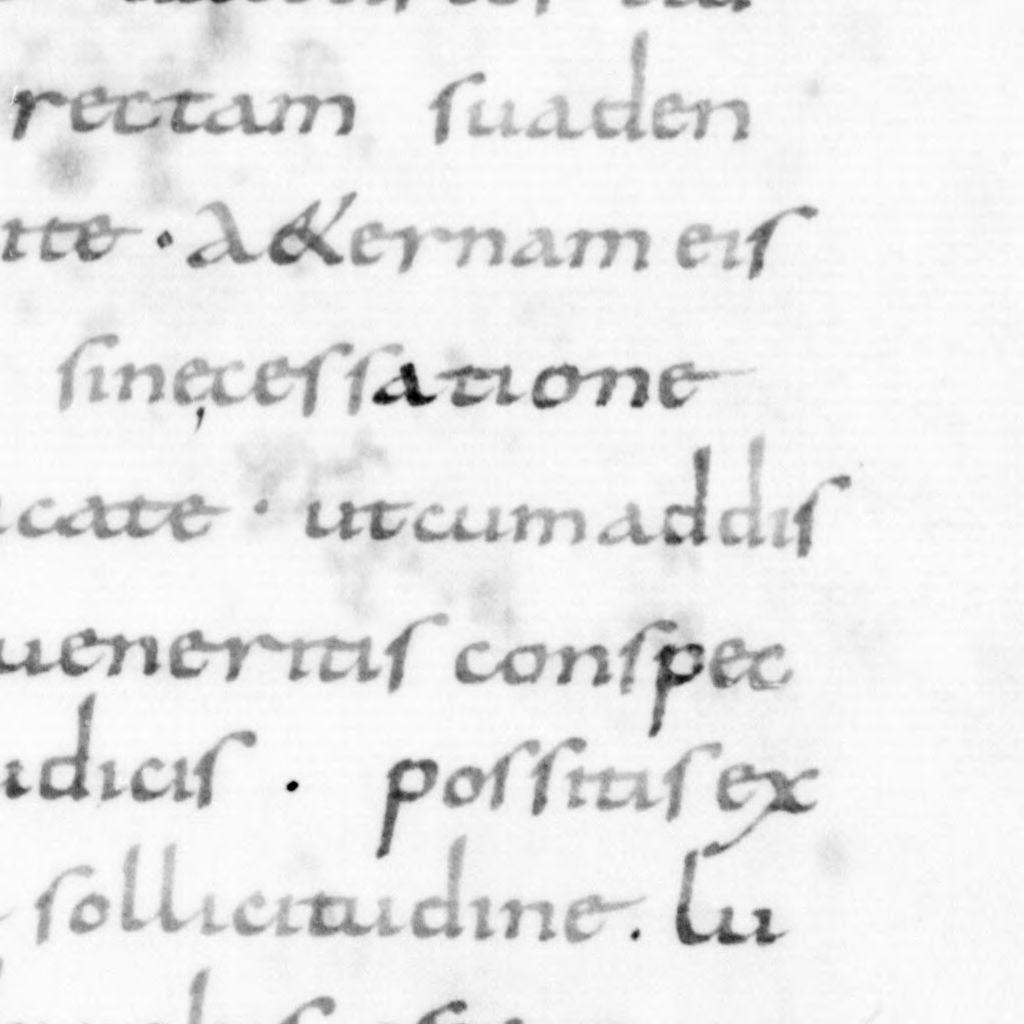 rectam suaden
A&ernam eis
sinęcessatione
utcum addis
ueneritis conspec
possitis ex
sollicitudine. lu